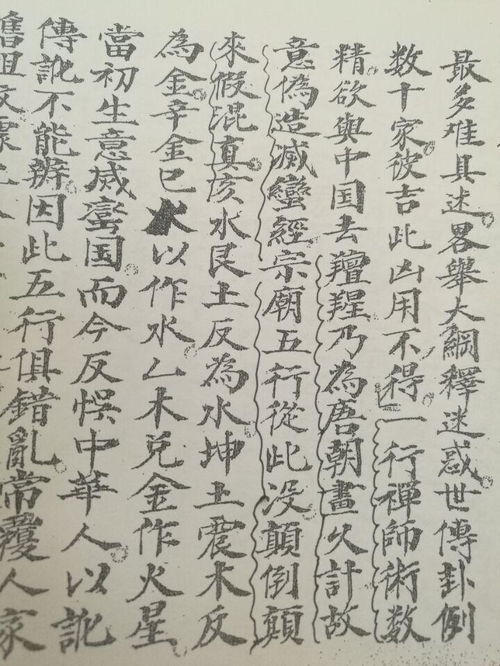 最多难具述畧舉大綱釋迷惑世傳卦例
数十家彼吉此凶用不得一行禪師術数
精欲與中国去羶羥乃為唐朝畫久計故
意偽造滅蠻經宗廟五行從此没顛倒顛
來假混真亥水艮土反為水坤土震木反
為金辛金巳火以作水乙木兌金作火星
當初生意滅蠻国而今反悮中華人以訛
傳訛不能辨因此五行俱錯亂常覆人家